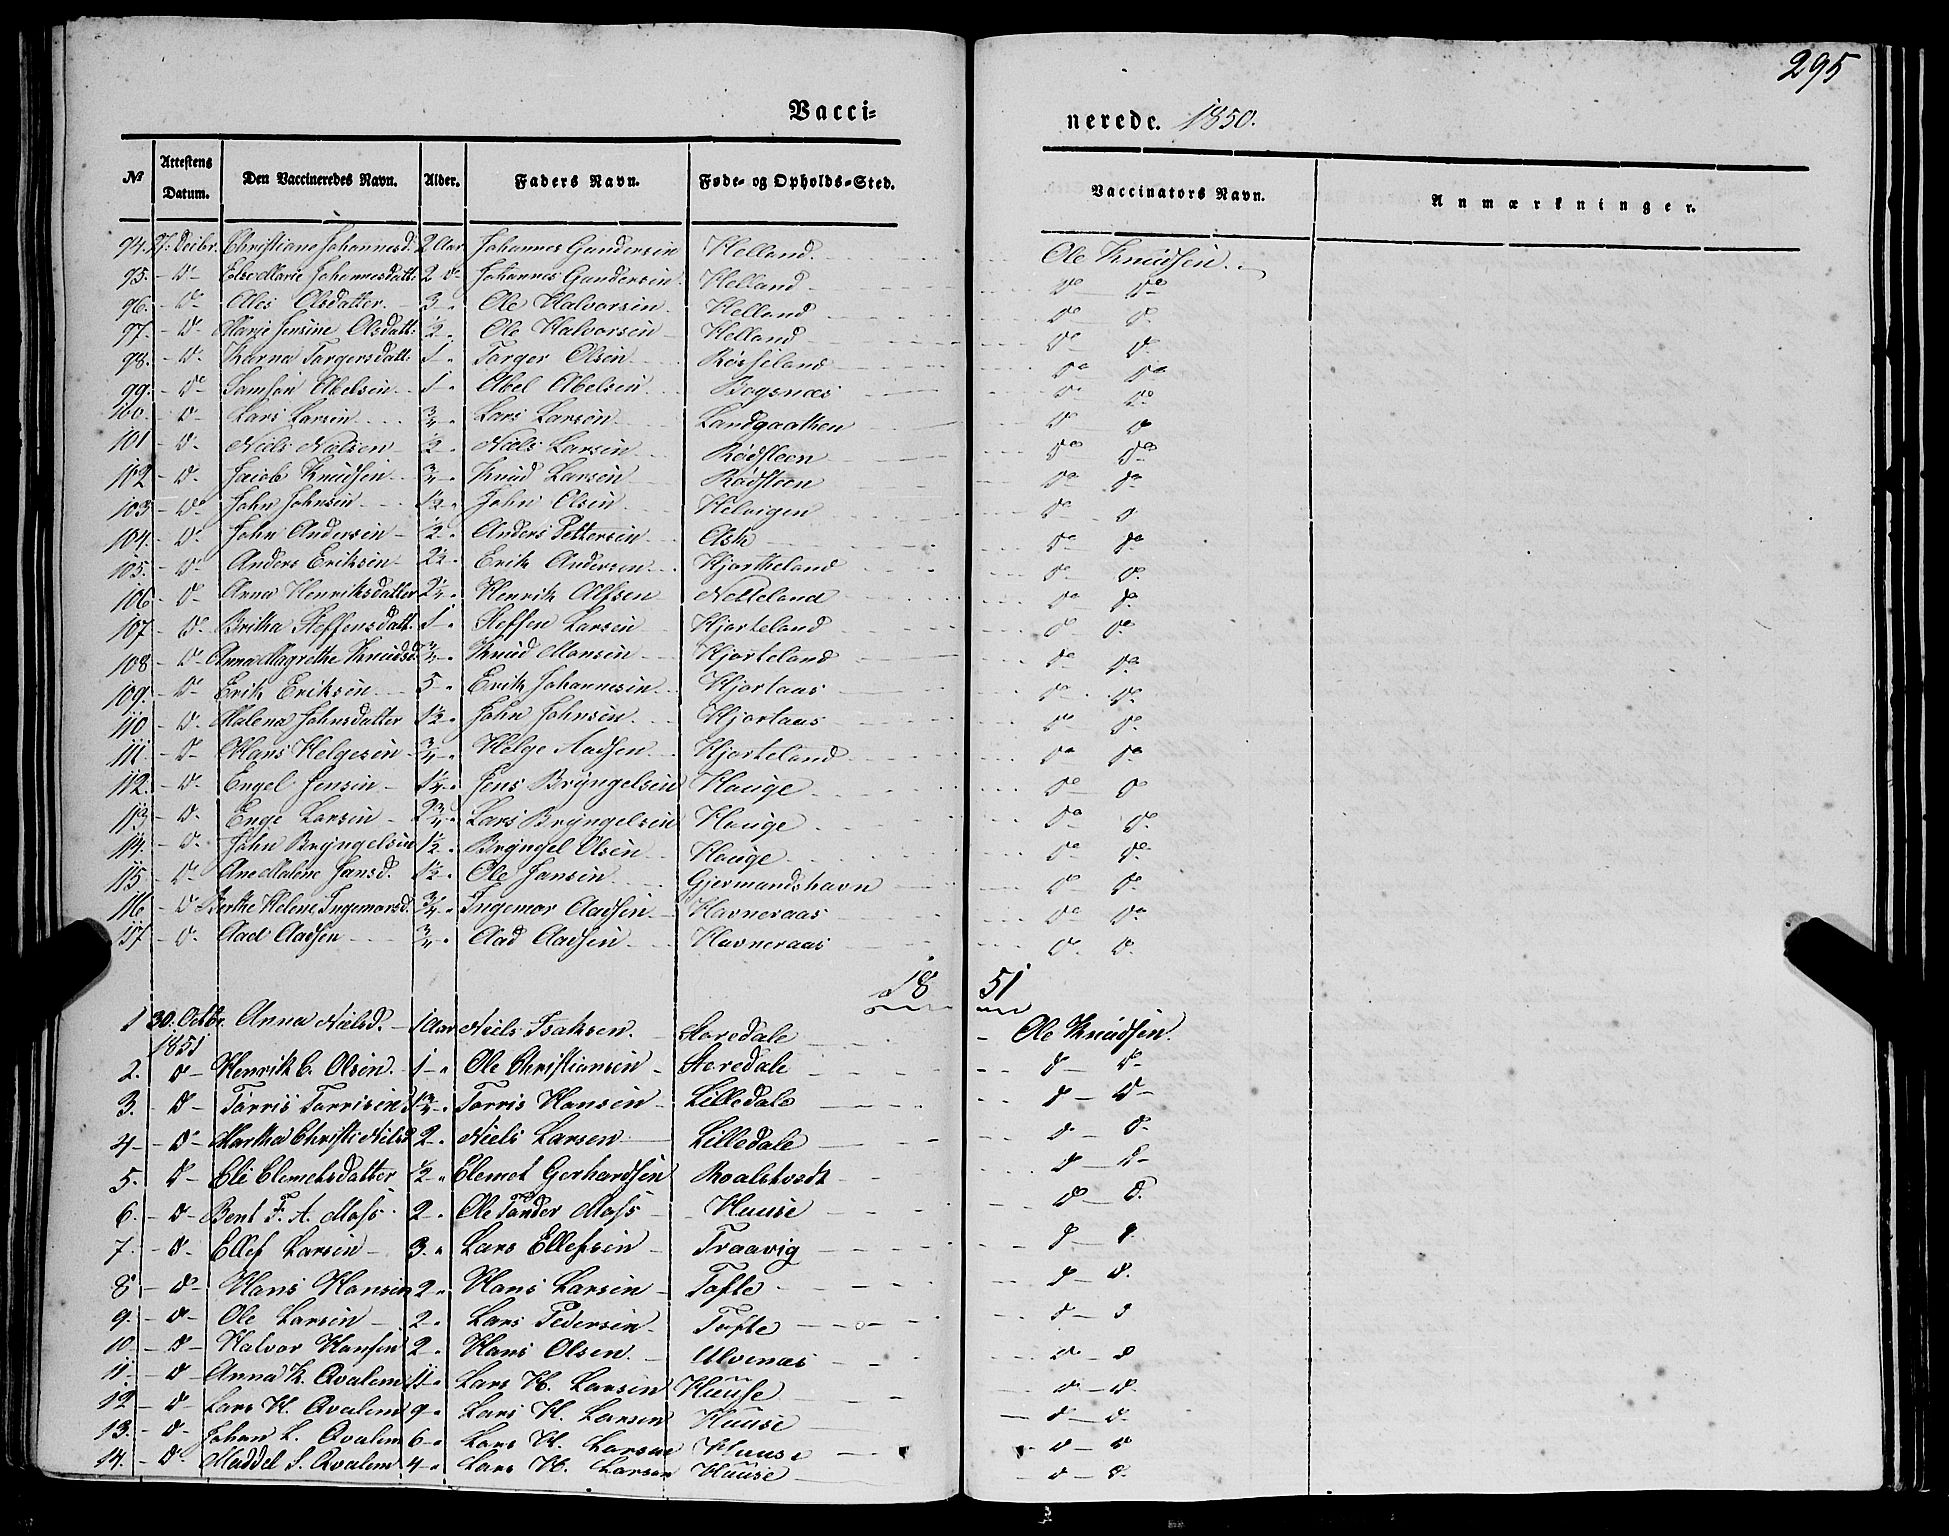 295
Vacci= nerede. 1850.
№ Attestens Datum. Den Vaccineredes Navn. Alder. Faders Navn. Føde- og Opholds-Sted. Vaccinators Navn. Anmærkninger.
94. 27. Decbr. Christiane Johannesd. 2 Aar Johannes Gundersen Helland. Ole Knudsen.
95. - do - Else Marie Johannesdatt. 2 do Johannes Gundersen Helland do do
96. - do - Olsdatter 3 - " Ole Halvorsen Helland do do
97. - do - Marie Jensine Olsdatt. 1/2 " Ole Halvorsen Helland do do
98. - do - Karna Torgersdatt. 1 " Torger Olsen Røsseland do do
99. - do - Samson Abelsen 1 " Abel Abelsen Bogsnæs do do
100. - do - Lars Larsen 3/4 " Lars Larsen Landgaathen do do
101 - do - Niels Nielsen 1/2 " Niels Larsen Rødsteen do do
102 - do - Jacob Knudsen 3/4 " Knud Larsen Rødsteen do do
103 - do - John Johnsen 1 1/2 " John Olsen Helvigen do do
104. - do - John Andersen 1/2 " Anders Pettersen Ask do do
105. - do - Anders Eriksen 2 1/2 " Erik Andersen Hjortheland do do
106 - do - Anna Henriksdatter 2 1/4 " Henrik Alfsen Netteland do do
107 - do - Britha Steffensdatt. 1 " Steffen Larsen Hjorteland do do
108 - do - Anna Magrethe Knudsd. 3/4 " Knud Monsen Hjorteland do do
109. - do - Erik Eriksen 5 - " Erik Johannesen Hjortaas do do
110 - do - Malena Johnsdatter 1 1/2 " John Johnsen Hjortaas do do
111. - do - Hans Helgesen 3/4 " Helge Aadsen Hjorteland do do
112. - do - Engel Jensen 1 1/4 " Jens Bryngelsen Hauge do do
113 - do - Enge Larsen 2 3/4 " Lars Bryngelsen Hauge do do
114. - do - John Bryngelsen 1 1/2 " Bryngel Olsen Hauge do do
115 - do - Ane Malene Jansd. 1 1/2 " Ole Jansen Gjermandshavn do do
116 - do - Berthe Helene Ingemorsd. 3/4 " Ingemor Aadsen Havneraas do do
117 - do - Aad Aadsen 3/4 " Aad Aadsen Havneraas do do
18 51
1 30. Octbr. 1851 Anna Nielsd. 1 Aar Niels Isaksen. Storedale Ole Knudsen.
2. do - Henrik C. Olsen. 1 - " Ole Christiansen Storedale do - do
3. - do - Torris Torrisen 1 3/4 " Torris Hansen Lilledale do - do -
4 - do - Martha Christi Nielsd 2 - " Niels Larsen Lilledale do - do
5. - do - Eli Clemetsdatter 1/2 " Clemet Gerhardsen Roaldstvedt do - do -
6. - do - Bent F. A. Moss 2 - " Ole Tønder Moss Huuse do - do
7. - do - Ellef Larsen 3. " Lars Ellefsen Traavig do - do
8 - do - Hans Hansen 2 - " Hans Larsen Tofte do - do
9. - do - Ole Larsen 2. " Lars Pedersen Tofte do - do
10. - do - Halvor Hansen 2 - " Hans Olsen. Ulvenæs do - do
11. - do Anna K. Qvalem 11 - Lars H. Larsen Huuse do - do
12 - do - Lars H. Qvalem 9 - " Lars H. Larsen Huuse do - do
13. - do - Johan L. Qvalem 6 - " Lars H. Larsen Huuse do - do
14. - do Maddel S. Qvalem 4 - " Lars H. Larsen Huuse do - do